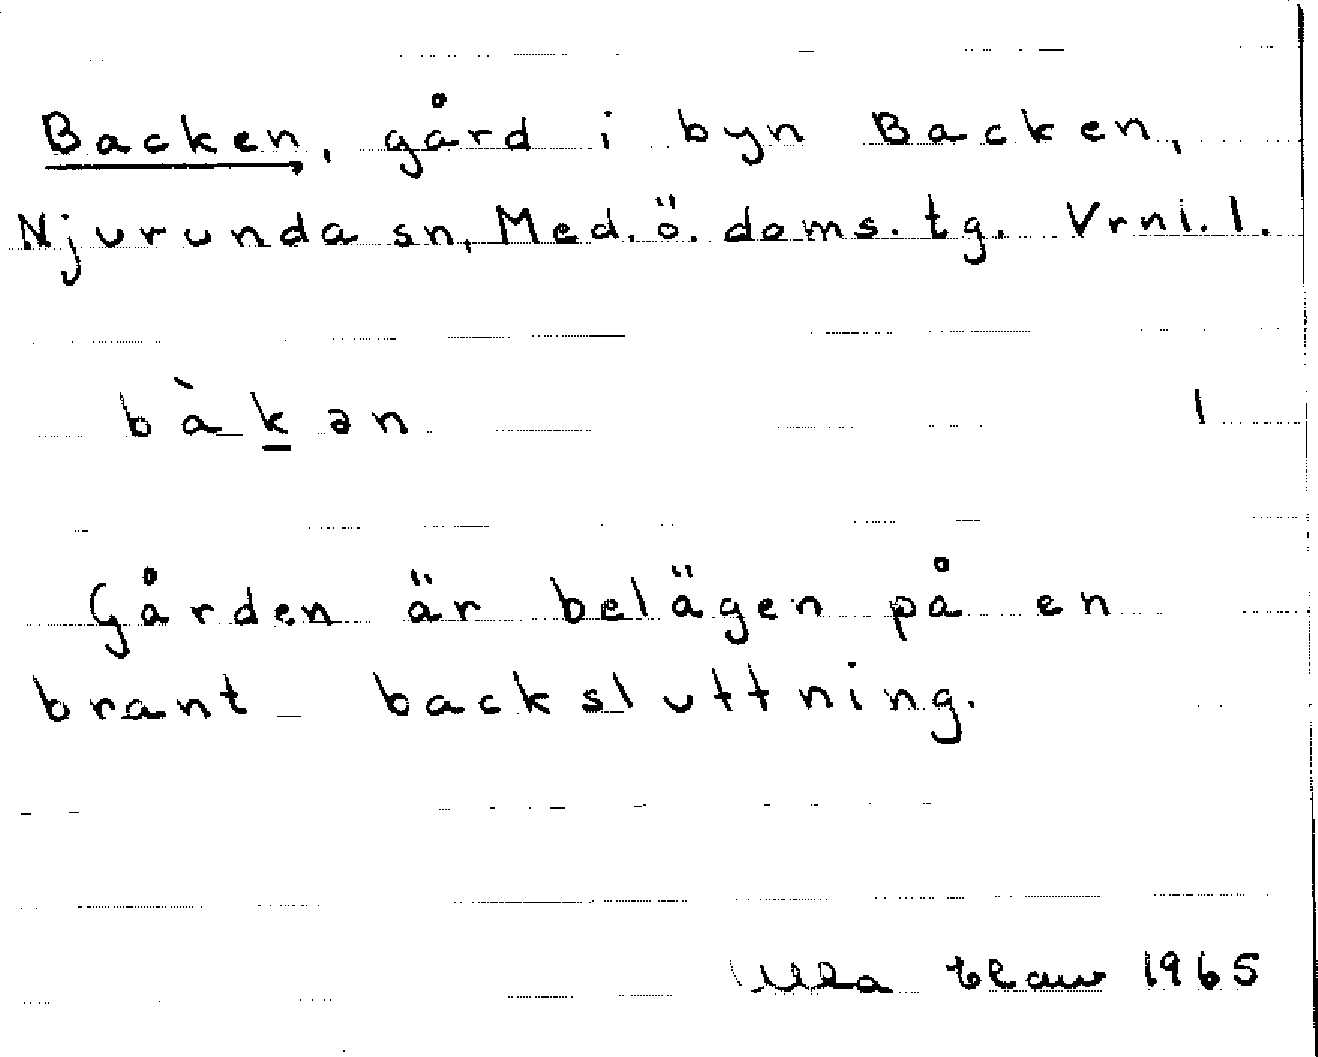 Backen, gård i byn Backen,
Njurunda sn, Med. ö. doms. tg. Vrnl. 1.
bàkən 1
Gården är belägen på en
brant backsluttning.
Ulla 1965